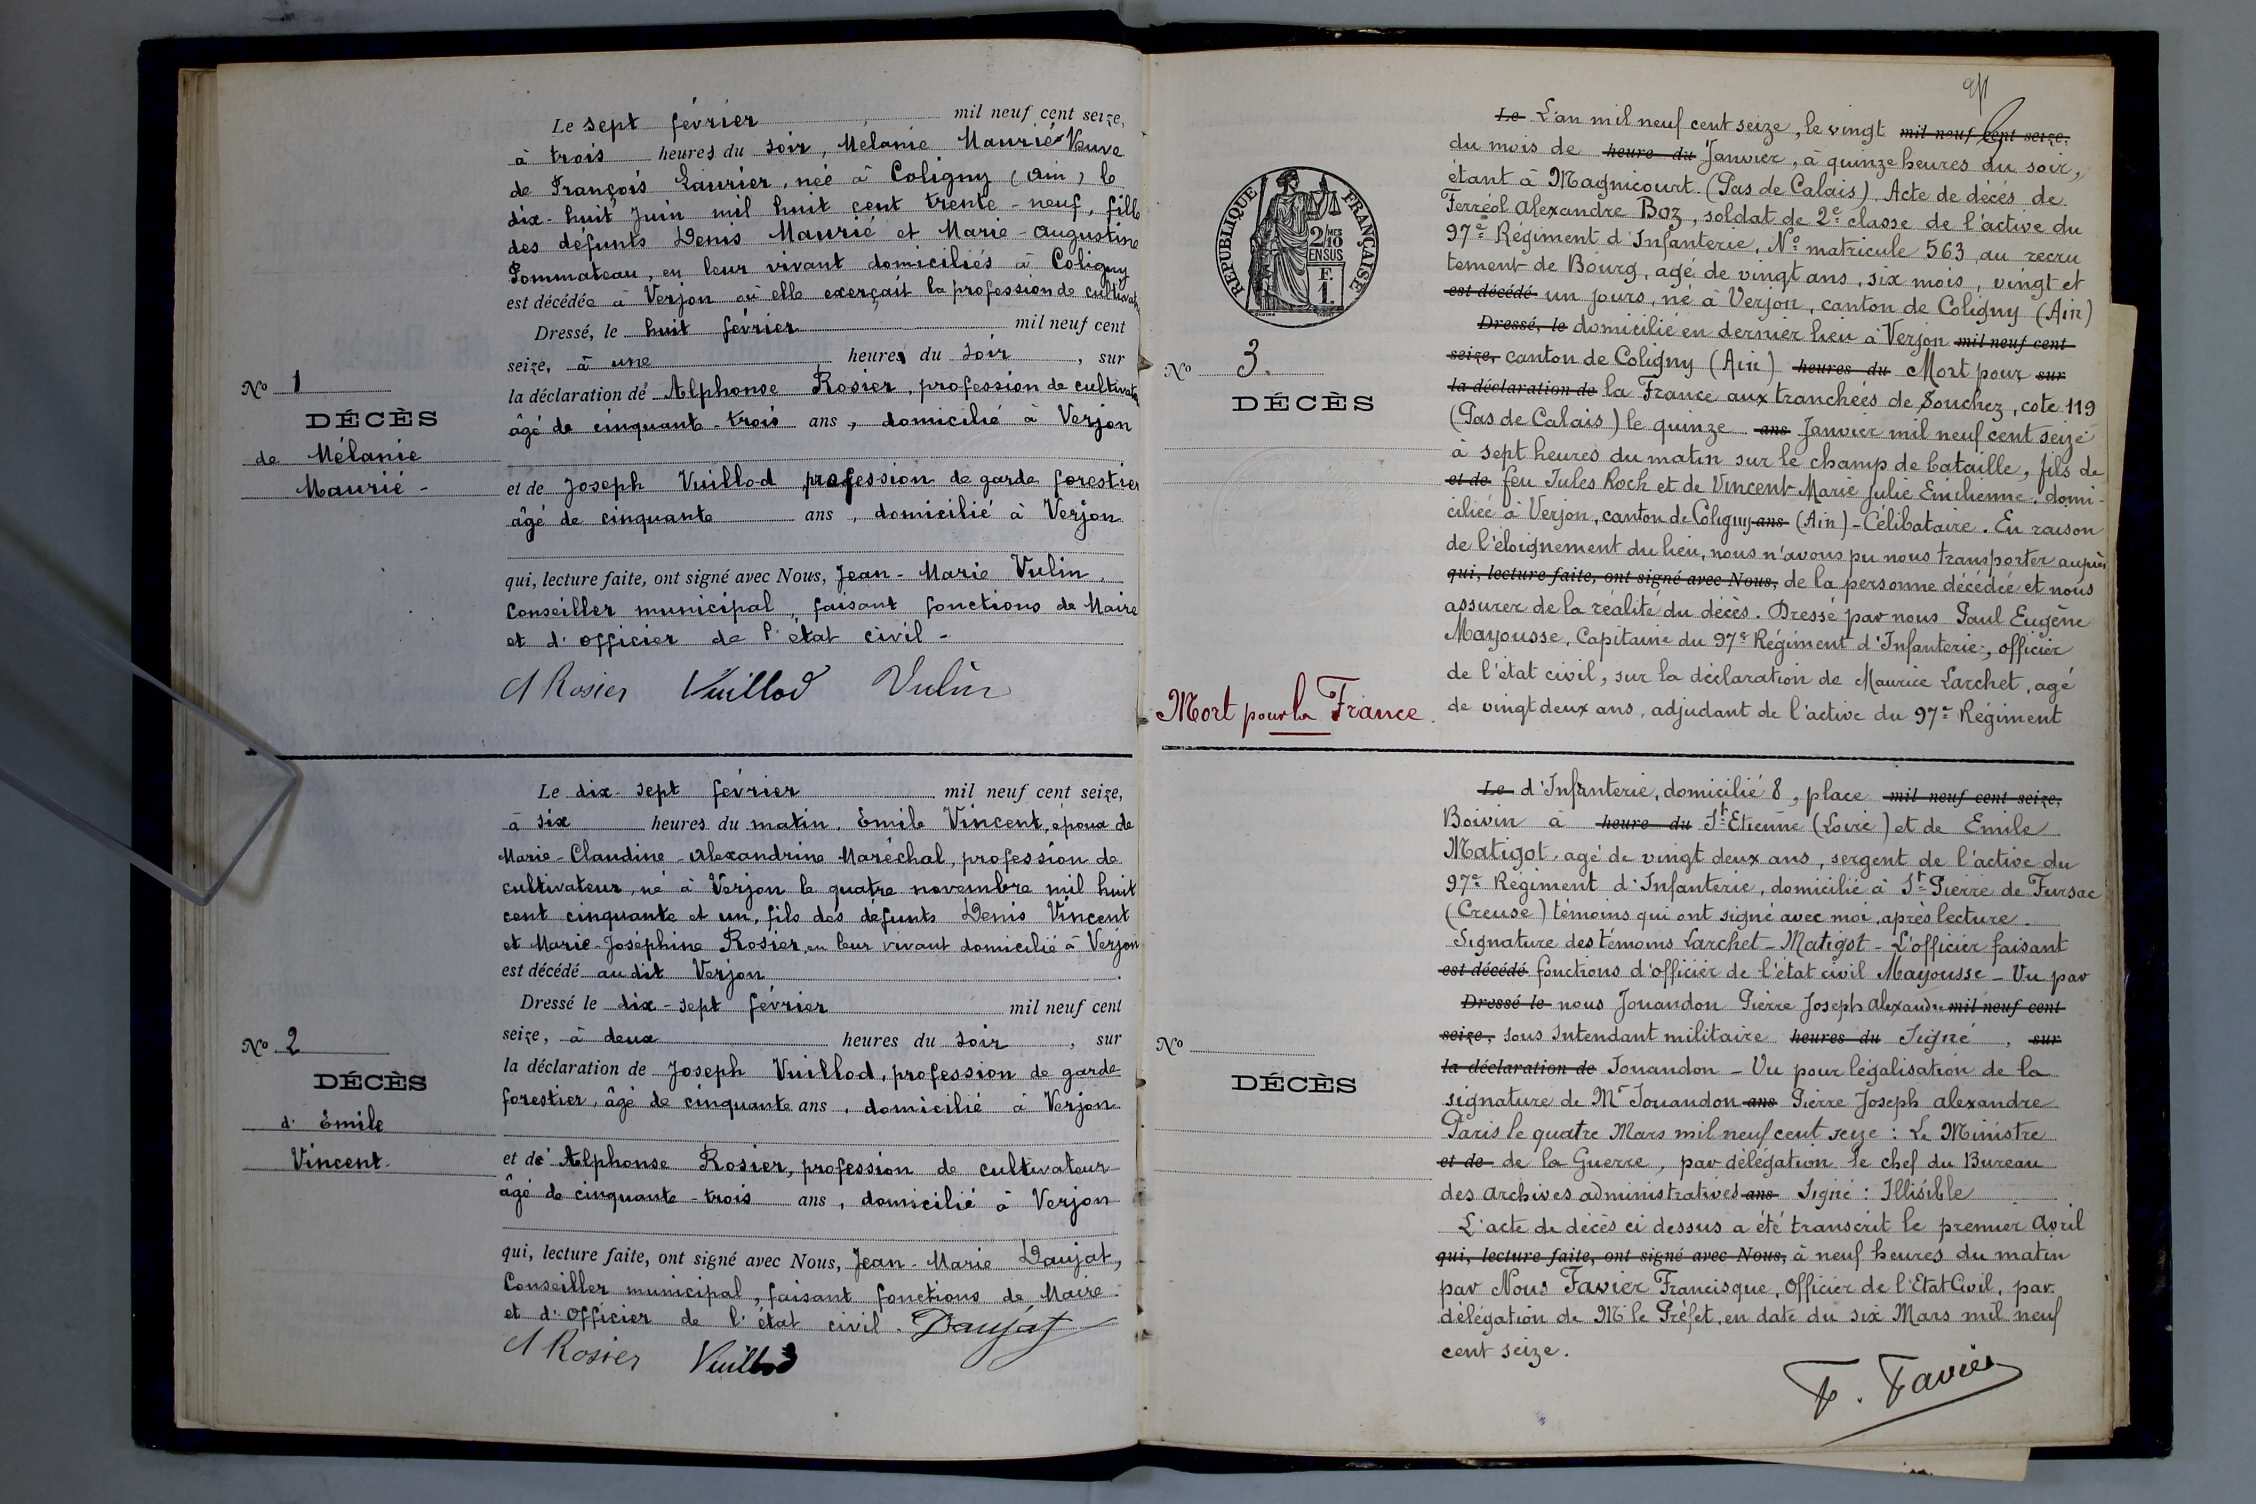 Le sept février mil neuf cent seize,
à trois heures du soir, Mélanie Maurié Veuve
de François Laurier, née à Coligny (Ain) le
dix-huit Juin mil huit cent trente-neuf, fille
des défunts Denis Maurié et Marie-Augustine
Pommateau, en leur vivant domiciliés à Coligny
est décédée à Verjon où elle exerçait la profession de cultivat
Dressé, le huit février mil neuf cent
seize, à une heures du soir, sur
la déclaration de Alphonse Rosier, profession de cultivat
âgé de cinquante-trois ans, domicilié à Verjon
et de Joseph Vuillod profession de garde forestier
âgé de cinquante ans, domicilié à Verjon
qui, lecture faite, ont signé avec Nous, Jean-Marie Vulin,
Conseiller municipal, faisant fonctions de Maire
et d'officier de l'état civil -
A Rosier Vuillod Vulin
No 1
DÉCÈS
de Mélanie
Maurié -
Le dix-sept février mil neuf cent seize,
à six heures du matin, Emile Vincent, époux de
Marie-Claudine-Alexandrine Maréchal, profession de
cultivateur, né à Verjon le quatre novembre mil huit
cent cinquante et un, fils des défunts Denis Vincent
et Marie-Joséphine Rosier, en leur vivant domicilié à Verjon
est décédé audit Verjon.
Dressé le dix-sept février mil neuf cent
seize, à deux heures du soir, sur
la déclaration de Joseph Vuillod, profession de garde
forestier, âgé de cinquante ans, domicilié à Verjon
et de Alphonse Rosier, profession de cultivateur
âgé de cinquante-trois ans, domicilié à Verjon
qui, lecture faite, ont signé avec Nous, Jean-Marie Daujat,
Conseiller municipal, faisant fonctions de Maire
et d'officier de l'état civil. Daujat
A Rosier Vuillod
No 2
DÉCÈS
d'Emile
Vincent.
RÉPUBLIQUE FRANÇAISE
2/10 MES
EN SUS
F
1.
No 3.
DÉCÈS
Mort pour la France.
Le L'an mil neuf cent seize, le vingt mil neuf cent seize,
du mois de heure du Janvier, à quinze heures du soir,
étant à Magnicourt (Pas de Calais) Acte de décès de
Ferréol Alexandre Boz, soldat de 2e classe de l'active du
97e Régiment d'Infanterie, No matricule 563 au recru
tement de Bourg, agé de vingt ans, six mois, vingt et
est décédé un jours, né à Verjon, canton de Coligny (Ain)
Dressé, le domicilié en dernier lieu à Verjon mil neuf cent
seize, canton de Coligny (Ain) heures du Mort pour sur
la déclaration de la France aux tranchées de Souchez, cote 119
(Pas de Calais) le quinze ans Janvier mil neuf cent seize
à sept heures du matin sur le champ de bataille, fils de
et de feu Jules Roch et de Vincent Marie Julie Emilienne, domi-
ciliée à Verjon, canton de Coligny ans (Ain) - Célibataire. En raison
de l'éloignement du lieu, nous n'avons pu nous transporter auprès
qui, lecture faite, ont signé avec Nous, de la personne décédée et nous
assurer de la réalité du décès. Dressé par nous Paul Eugène
Mayousse, Capitaine du 97e Régiment d'Infanterie, officier
de l'état civil, sur la déclaration de Maurice Larchet, agé
de vingt deux ans, adjudant de l'active du 97e Régiment
Le d'Infanterie, domicilié 8, place mil neuf cent seize,
Boivin à heure du St Etienne (Loire) et de Emile
Matigot, agé de vingt deux ans, sergent de l'active du
97e Régiment d'Infanterie, domicilié à St Pierre de Fursac
(Creuse) témoins qui ont signé avec moi, après lecture.
Signature des témoins Larchet - Matigot - L'officier faisant
est décédé fonctions d'officier de l'état civil Mayousse - Vu par
Dressé le nous Jouandon Pierre Joseph Alexandre mil neuf cent
seize, sous Intendant militaire heures du Signé, sur
la déclaration de Jouandon - Vu pour légalisation de la
signature de Mr Jouandon ans Pierre Joseph Alexandre
Paris le quatre Mars mil neuf cent seize : Le Ministre
et de de la Guerre, par délégation le chef du Bureau
des Archives administratives ans Signé : Illisible
L'acte de décès ci dessus a été transcrit le premier Avril
qui, lecture faite, ont signé avec Nous, à neuf heures du matin
par Nous Favier Francisque, Officier de l'Etat Civil, par
délégation de Mr le Préfet, en date du six Mars mil neuf
cent seize.
F. Favier
No
DÉCÈS